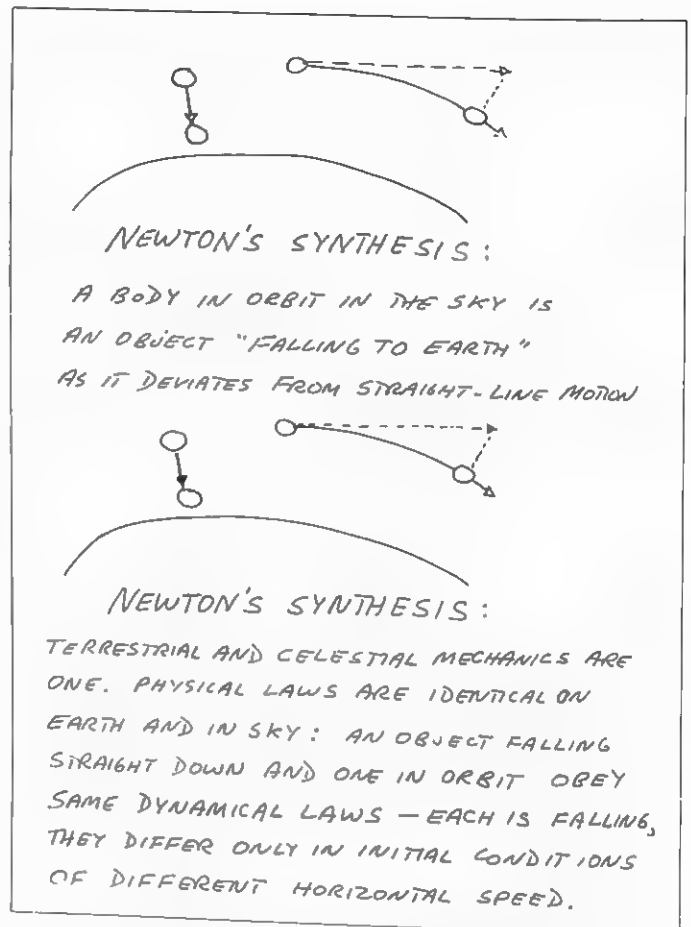 NEWTON'S SYNTHESIS:
A BODY IN ORBIT IN THE SKY IS
AN OBJECT "FALLING TO EARTH"
AS IT DEVIATES FROM STRAIGHT-LINE MOTION
NEWTON'S SYNTHESIS:
TERRESTRIAL AND CELESTIAL MECHANICS ARE
ONE. PHYSICAL LAWS ARE IDENTICAL ON
EARTH AND IN SKY: AN OBJECT FALLING
STRAIGHT DOWN AND ONE IN ORBIT OBEY
SAME DYNAMICAL LAWS — EACH IS FALLING,
THEY DIFFER ONLY IN INITIAL CONDITIONS
OF DIFFERENT HORIZONTAL SPEED.